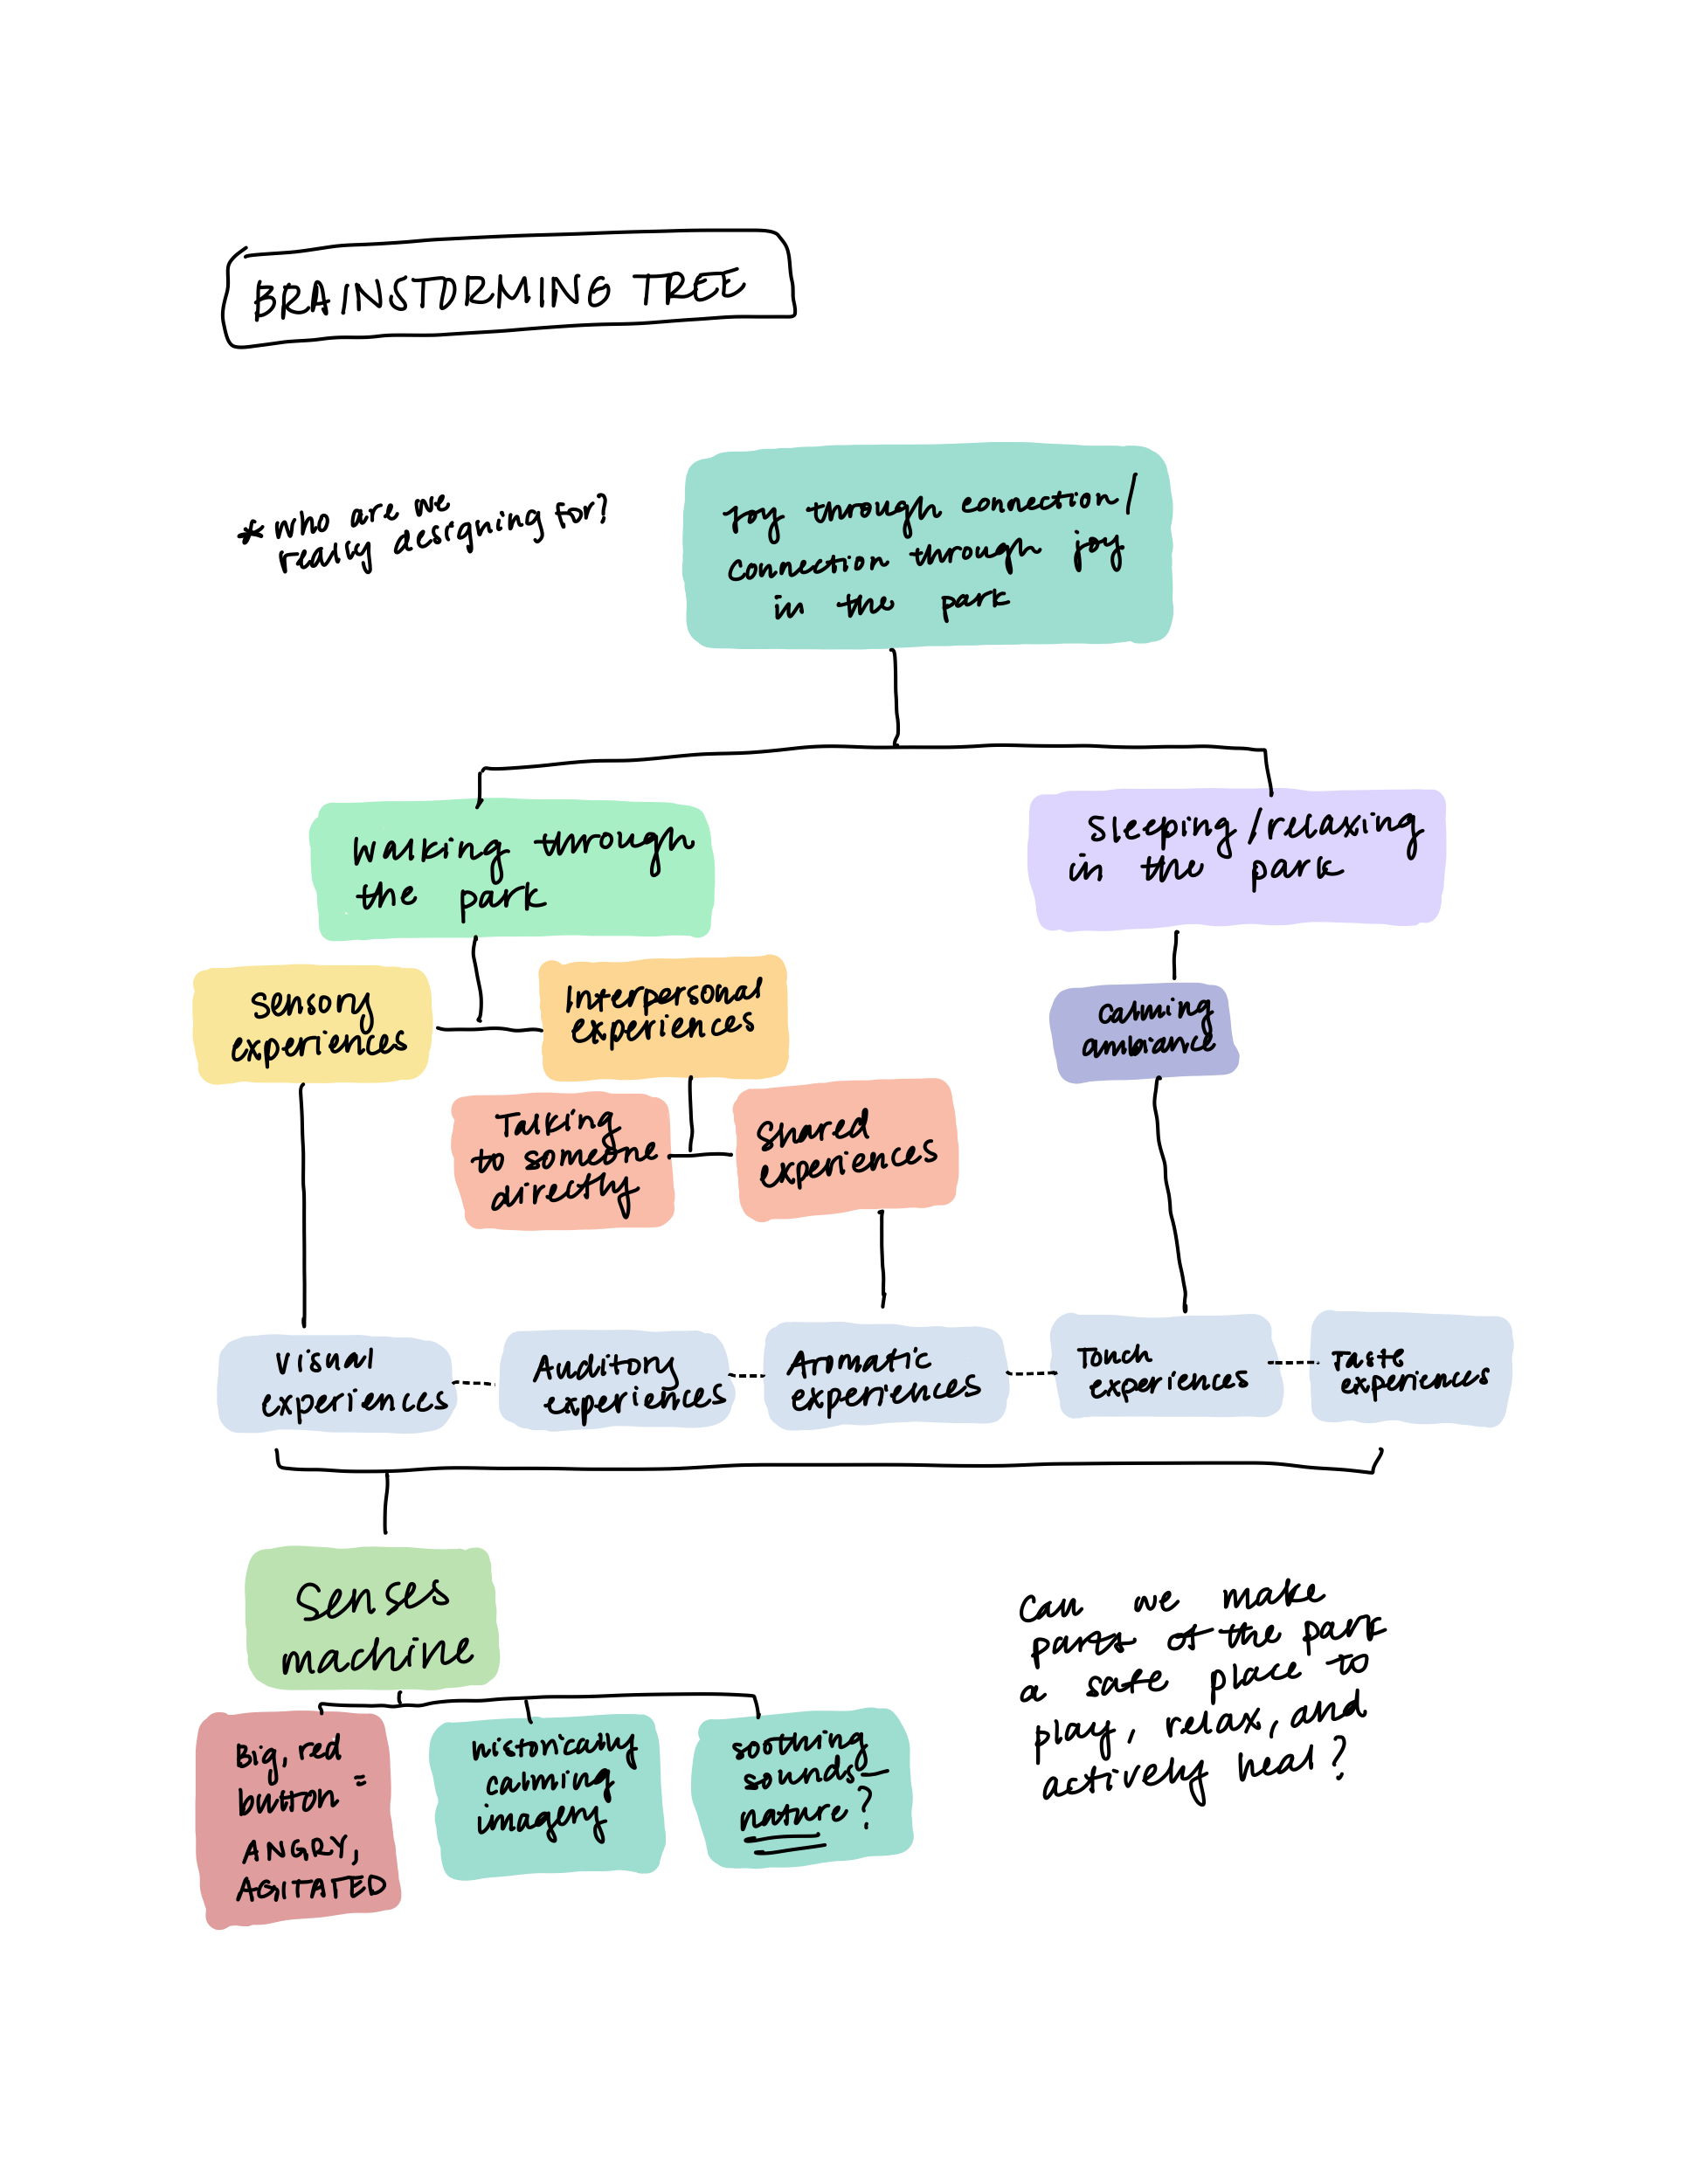 BRAINSTORMING TREE
* who are we
really designing for?
Joy through connection/
connection through joy
in the park
Walking through
the park
Sleeping/relaxing
in the park
Sensory
experiences
Interpersonal
experiences
calming
ambiance
Talking
to someone
directly
Shared
experiences
Visual
experiences
Auditory
experiences
Aromatic
experiences
Touch
experiences
Taste
experiences
Senses
machine
Big, red
button =
ANGRY,
AGITATED
historically
calming
imagery
soothing
sounds—
nature?
Can we make
parts of the park
a safe place to
play, relax, and
actively heal?